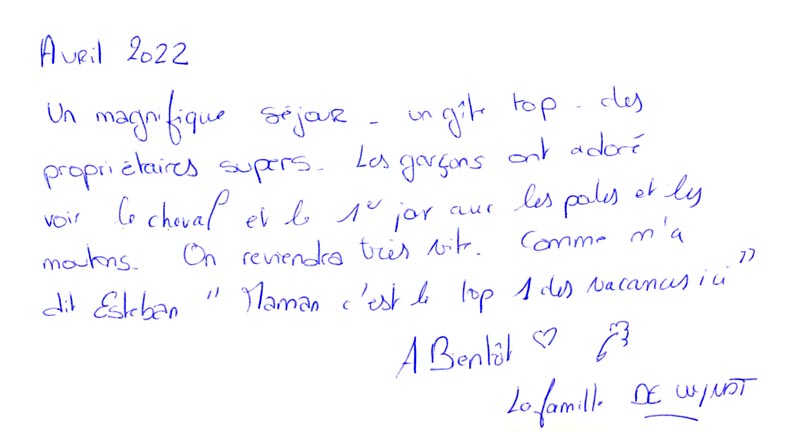 Avril 2022
Un magnifique séjour - un gîte top - des
propriétaires supers. Les garçons ont adoré
voir le cheval et le 1er jour avec les poules et les
moutons. On reviendra très vite. Comme m'a
dit Esteban " Maman c'est le top 1 des vacances ici "
A Bientôt ♡
La famille DE